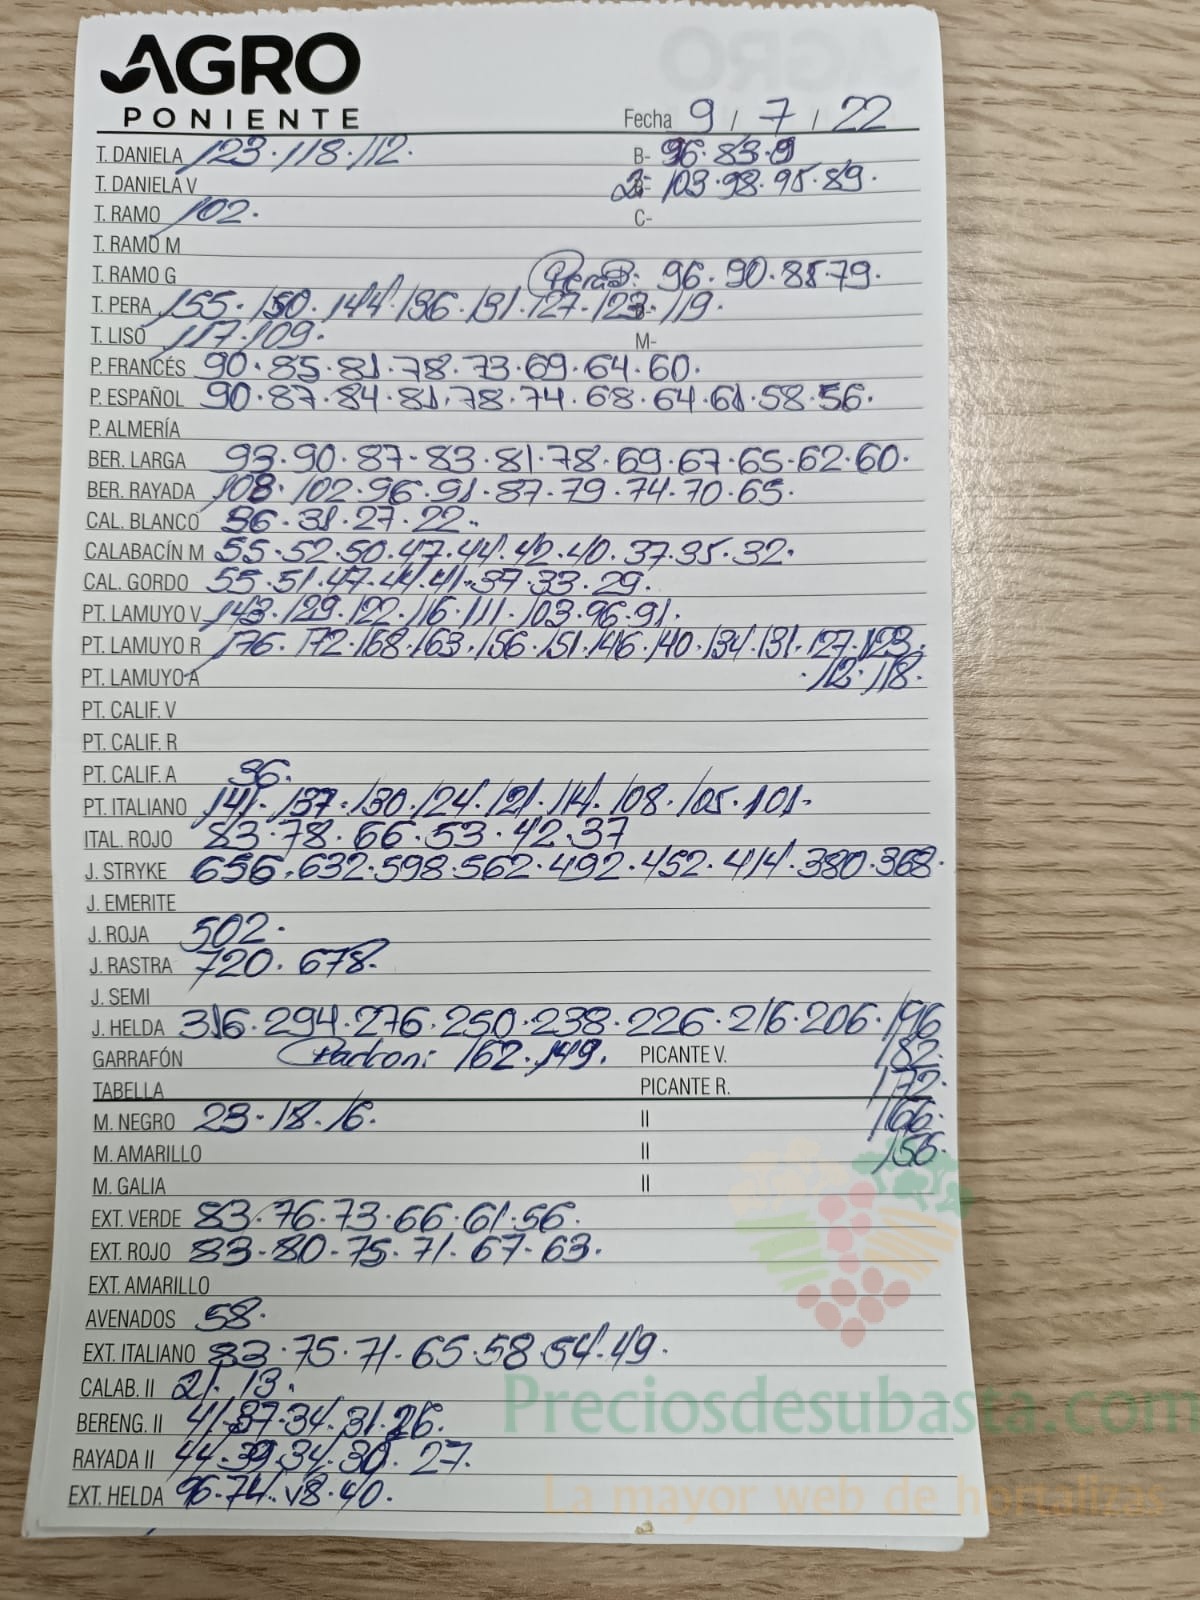 AGRO
PONIENTE
Fecha 9 / 7 / 22
T. DANIELA 123·118·112· B- 96·83·9
T. DANIELA V 2- 103·98·95·89·
T. RAMO 102· C-
T. RAMO M
T. RAMO G Pera B: 96·90·85·79·
T. PERA 155·150·144·136·131·127·123·119·
T. LISO 117·109· M-
P. FRANCÉS 90·85·81·78·73·69·64·60·
P. ESPAÑOL 90·87·84·81·78·74·68·64·61·58·56·
P. ALMERÍA
BER. LARGA 93·90·87·83·81·78·69·67·65·62·60·
BER. RAYADA 108·102·96·91·87·79·74·70·65·
CAL. BLANCO 36·31·27·22·
CALABACÍN M 55·52·50·47·44·42·40·37·35·32·
CAL. GORDO 55·51·47·44·41·37·33·29·
PT. LAMUYO V 143·129·122·116·111·103·96·91·
PT. LAMUYO R 176·172·168·163·156·151·146·140·134·131·127·123·
PT. LAMUYO A ·112·118·
PT. CALIF. V
PT. CALIF. R
PT. CALIF. A 36·
PT. ITALIANO 141·137·130·124·121·114·108·105·101·
ITAL. ROJO 83·78·66·53·42·37
J. STRYKE 656·632·598·562·492·452·414·380·368·
J. EMERITE
J. ROJA 502·
J. RASTRA 720·678·
J. SEMI
J. HELDA 316·294·276·250·238·226·216·206·196
GARRAFÓN Padron: 162·149· PICANTE V. 182·
TABELLA PICANTE R. 172·
M. NEGRO 23·18·16· II 166·
M. AMARILLO II 156·
M. GALIA II
EXT. VERDE 83·76·73·66·61·56·
EXT. ROJO 83·80·75·71·67·63·
EXT. AMARILLO
AVENADOS 58·
EXT. ITALIANO 83·75·71·65·58·54·49·
CALAB. II 21·13·
Preciosdesubasta.com
BERENG. II 41·37·34·31·26·
RAYADA II 44·39·34·30·27·
EXT. HELDA 96·74· 40·
La mayor web de hortalizas